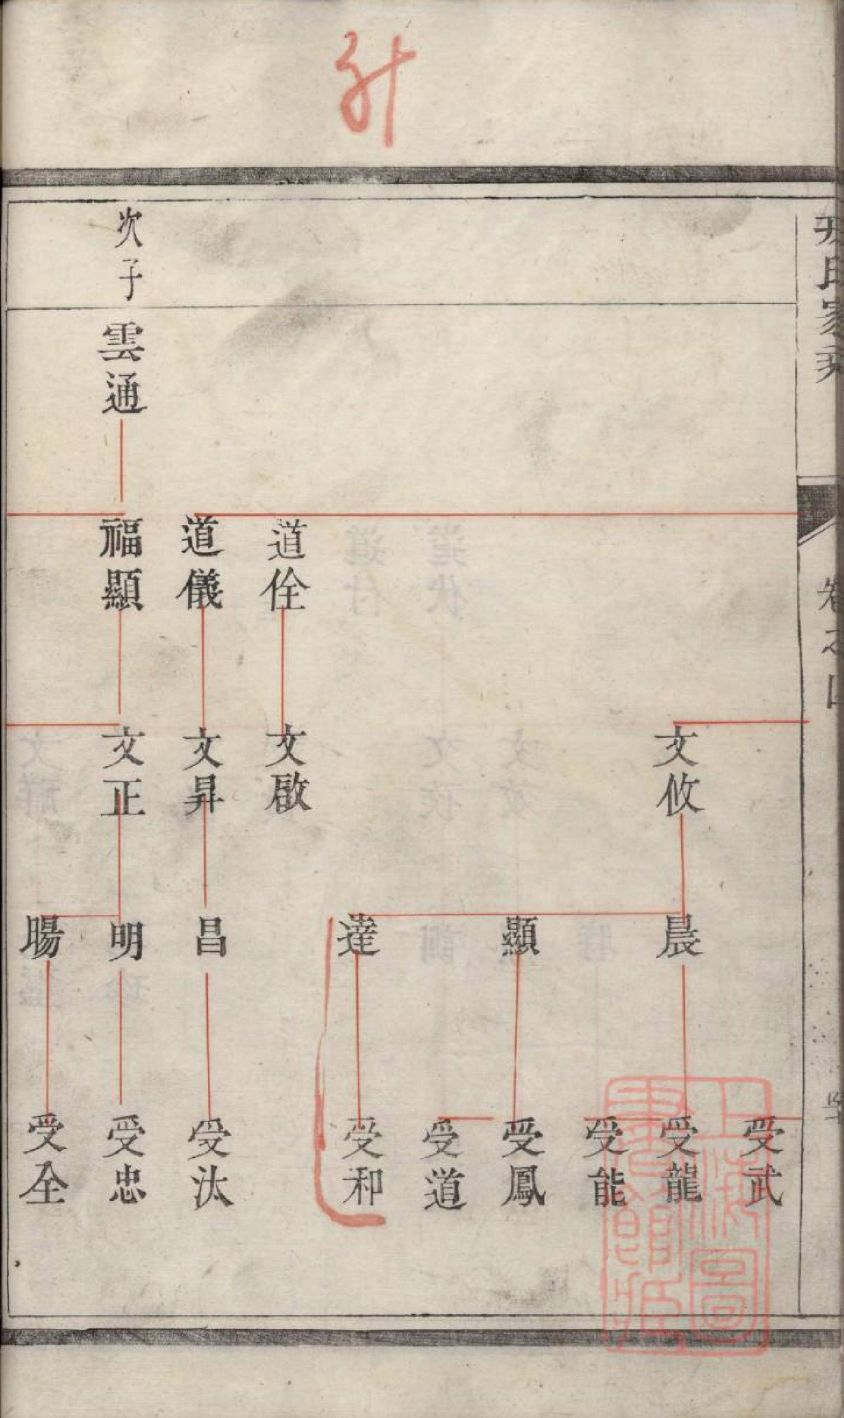 次子 雲通
福顯 道儀 道佺
文正 文昇 文啟 文攸
晨 顯 達 昌 明 暘
受武 受龍 受能 受鳳 受道 受和 受汰 受忠 受全
氏家
卷之四
上海圖書館藏